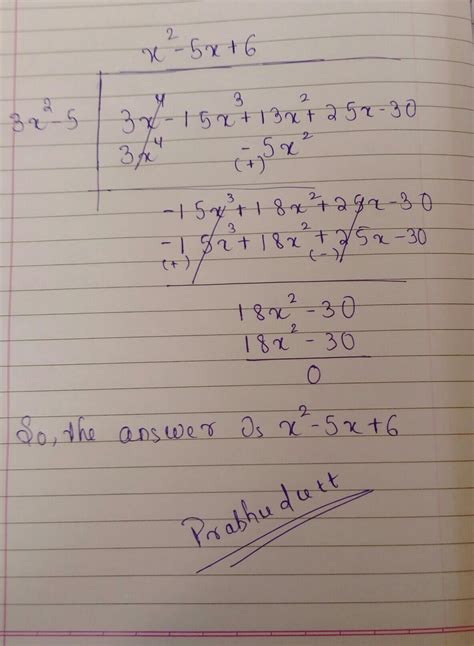 x² - 5x + 6
3x² - 5 | 3x⁴ - 15x³ + 13x² + 25x - 30
3x⁴ - 5x²
(+)
- 15x³ + 18x² + 25x - 30
- 15x³ + 18x² + 25x - 30
(+) (-)
18x² - 30
18x² - 30
0
So, the answer is x² - 5x + 6
Prabhudutt